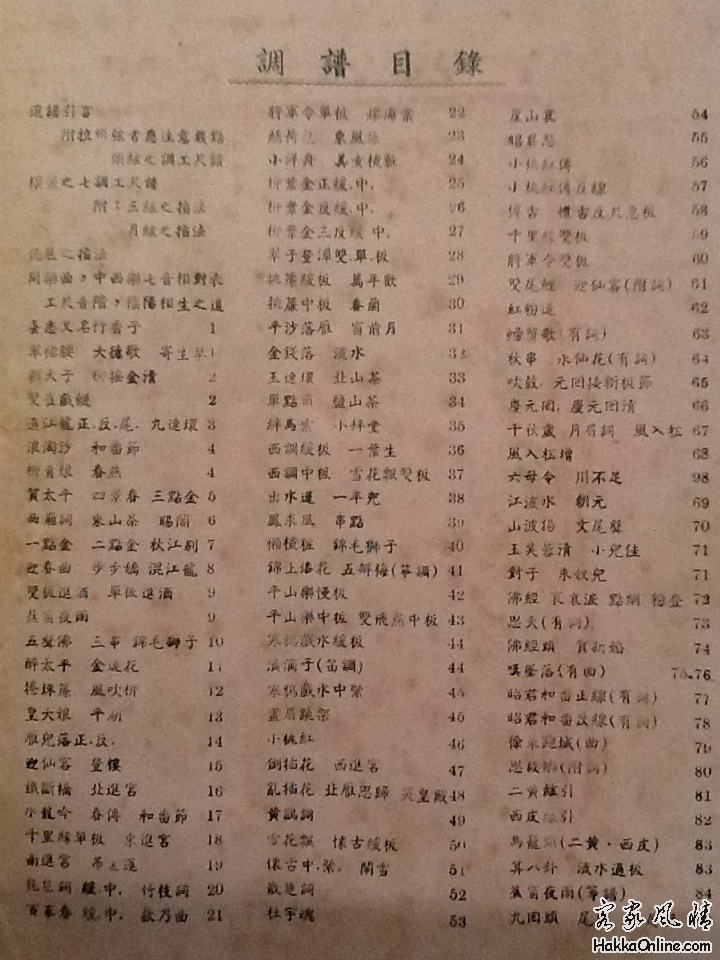 調譜目錄
選譜引言
之七調工尺譜
附：三絃之指法
月絃之指法
琵琶之指法
同樂曲，中西樂七音相對表
工尺音階，陰陽相生之道
又名行香子 1
大德歌 寄生草 1
金濟 2
雙 2
過江龍正.反.尾. 九連環 3
浪淘沙 和番節 4
柳青娘 春燕 4
賀太平 四景春 三點金 5
西廂詞 東山茶 賜蘭 6
一點金 二點金 秋江別 7
迎春曲 步步嬌 混江龍 8
雙板進酒 單板進酒 9
蕉窗夜雨 9
五聲佛 三串 錦毛獅子 10
醉太平 金蓮花 11
捲珠簾 風吹 12
皇大娘 平湖 13
雁兒落正.反. 14
迎仙客 登樓 15
鐵斷橋 北進宮 16
水龍吟 春傳 和番節 17
千里緣單板 東進宮 18
南進宮 19
琵琶詞 緩.中. 竹枝詞 20
百家春 緩.中. 欸乃曲 21
將軍令單板 海棠 22
東風 23
小 舟 美女梳妝 24
柳葉金正緩.中. 25
柳葉金反緩.中. 26
柳葉金三反緩.中. 27
雙.單.板 28
挑簾緩板 萬年歡 29
挑簾中板 春蘭 30
平沙落雁 窗前月 31
金錢落 流水 32
玉連環 北山茶 33
單點頭 鹽山茶 34
絆馬索 小梅堂 35
西調緩板 一葉生 36
西調中板 雪花飄雙板 37
出水蓮 一半兒 38
鳳求凰 串點 39
懶梳粧 錦毛獅子 40
錦上添花 五瓣梅(箏調) 41
平山樂慢板 42
平山樂中板 雙飛燕中板 43
寒鴉戲水緩板 44
滴滴子(笛調) 44
寒鴉戲水中緊 45
畫眉跳架 45
小桃紅 46
倒插花 西進宮 47
亂插花 北雁思歸 天皇殿 48
黃鸝詞 49
雪花飄 懷古緩板 50
懷古中.緊. 鬧雪 51
散楚詞 52
杜宇魂 53
崖山哀 54
昭君怨 55
小桃紅傳 56
小桃紅傳反線 57
博古 博古反尺急板 58
千里緣雙板 59
將軍令雙板 60
雙尾鯉 迎仙客(附詞) 61
紅粉蓮 62
螃蟹歌(有詞) 63
秋串 水仙花(有詞) 64
吹鼓 元回接新板節 65
慶元回 慶元回清 66
千秋歲 月眉詞 風入松 67
風入松增 68
六毋令 川不足 98
江流水 朝元 69
山波揚 文尾聲 70
玉芙蓉清 小兒佳 71
對子 朱奴兒 71
佛經 哀哀淚 點絳 粉登 72
思夫(有詞) 73
佛經頭 賀新婚 74
嘆墜落(有曲) 75.76
昭君和番正線(有詞) 77
昭君和番反線(有詞) 78
徐 跑城(曲) 79
思故鄉(附詞) 80
二黃絃引 81
西皮絃引 82
馬龍頭(二黃.西皮) 83
算八卦 流水過板 83
蕉窗夜雨(箏譜) 84
九回頭 尾
客家風情
HakkaOnline.com